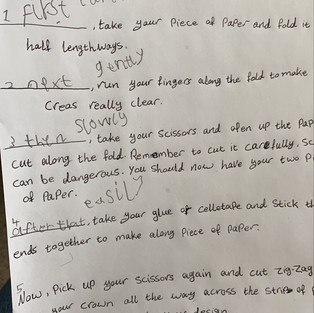 1 first, take your piece of paper and fold it
half lengthways.
gently
2 next, run your fingers along the fold to make
creas really clear.
slowly
3 then, take your scissors and open up the Pap
cut along the fold. Remember to cut it carefully, Sc
can be dangerous. You should now have your two p
of Paper.
easily
4 after that, take your glue or celletape and stick th
ends together to make along piece of paper.
5 Now, Pick up your scissors again and cut zig-zag
your crown all the way across the strip of p
design